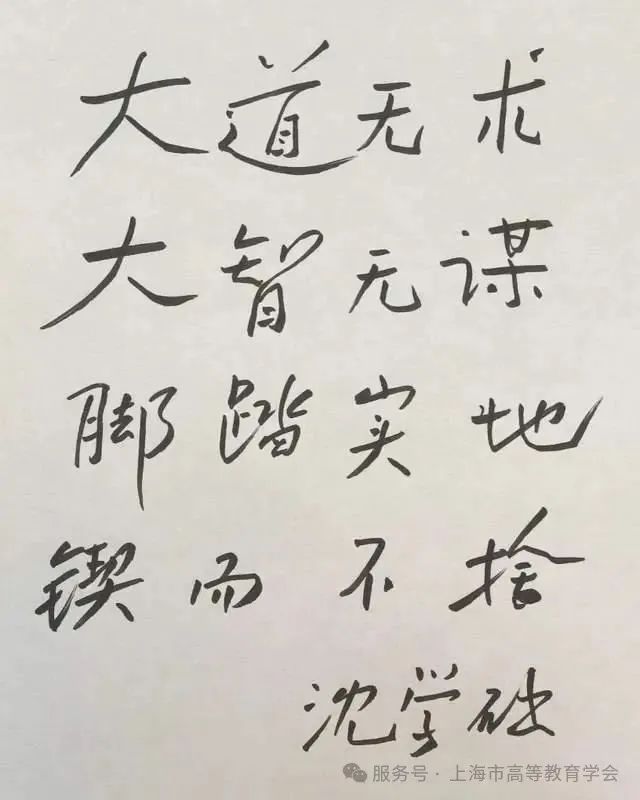 大道无术
大智无谋
脚踏实地
锲而不捨
沈学础
服务号·上海市高等教育学会